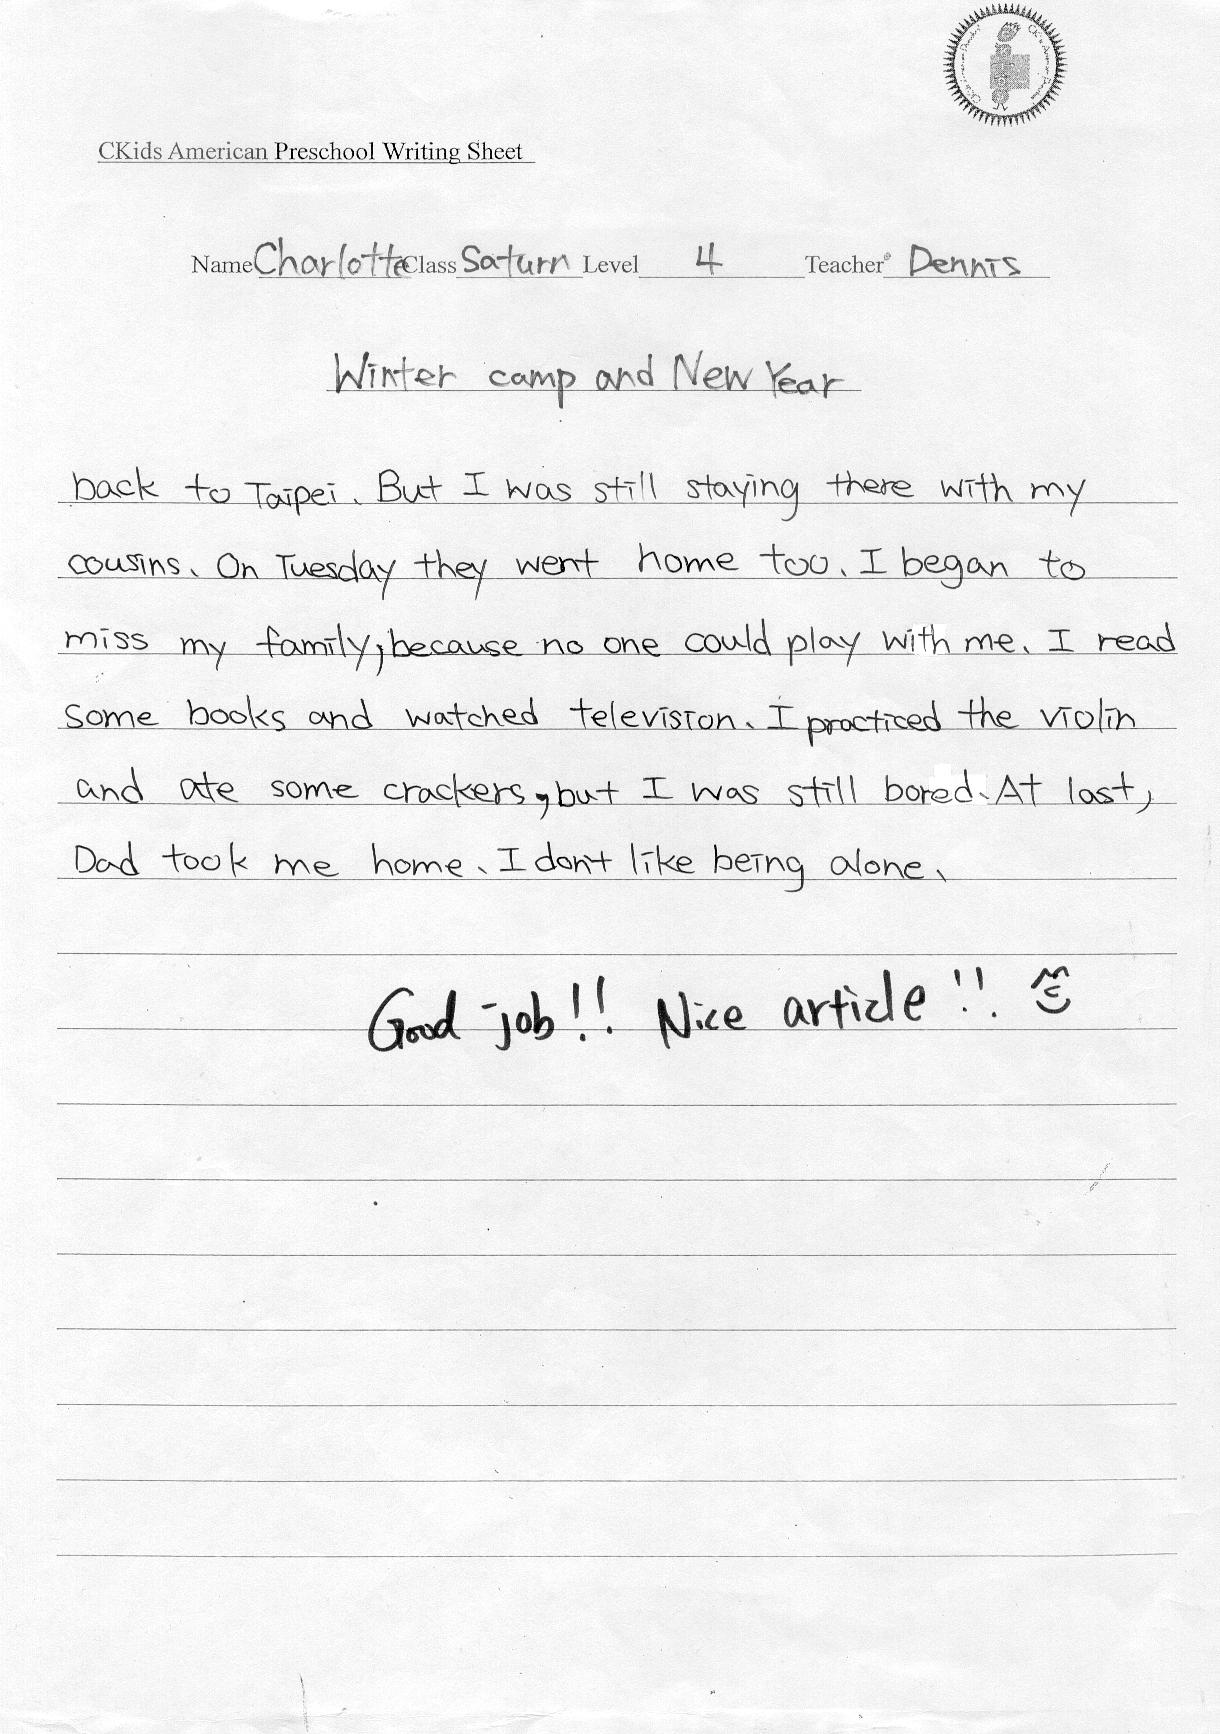 CKids American Preschool Writing Sheet
Name Charlotte Class Saturn Level 4 Teacher Dennis
Winter camp and New Year
back to Taipei. But I was still staying there with my
cousins. On Tuesday they went home too. I began to
miss my family, because no one could play with me. I read
some books and watched television. I practiced the violin
and ate some crackers, but I was still bored. At last,
Dad took me home. I don't like being alone.
Good job!! Nice article!!